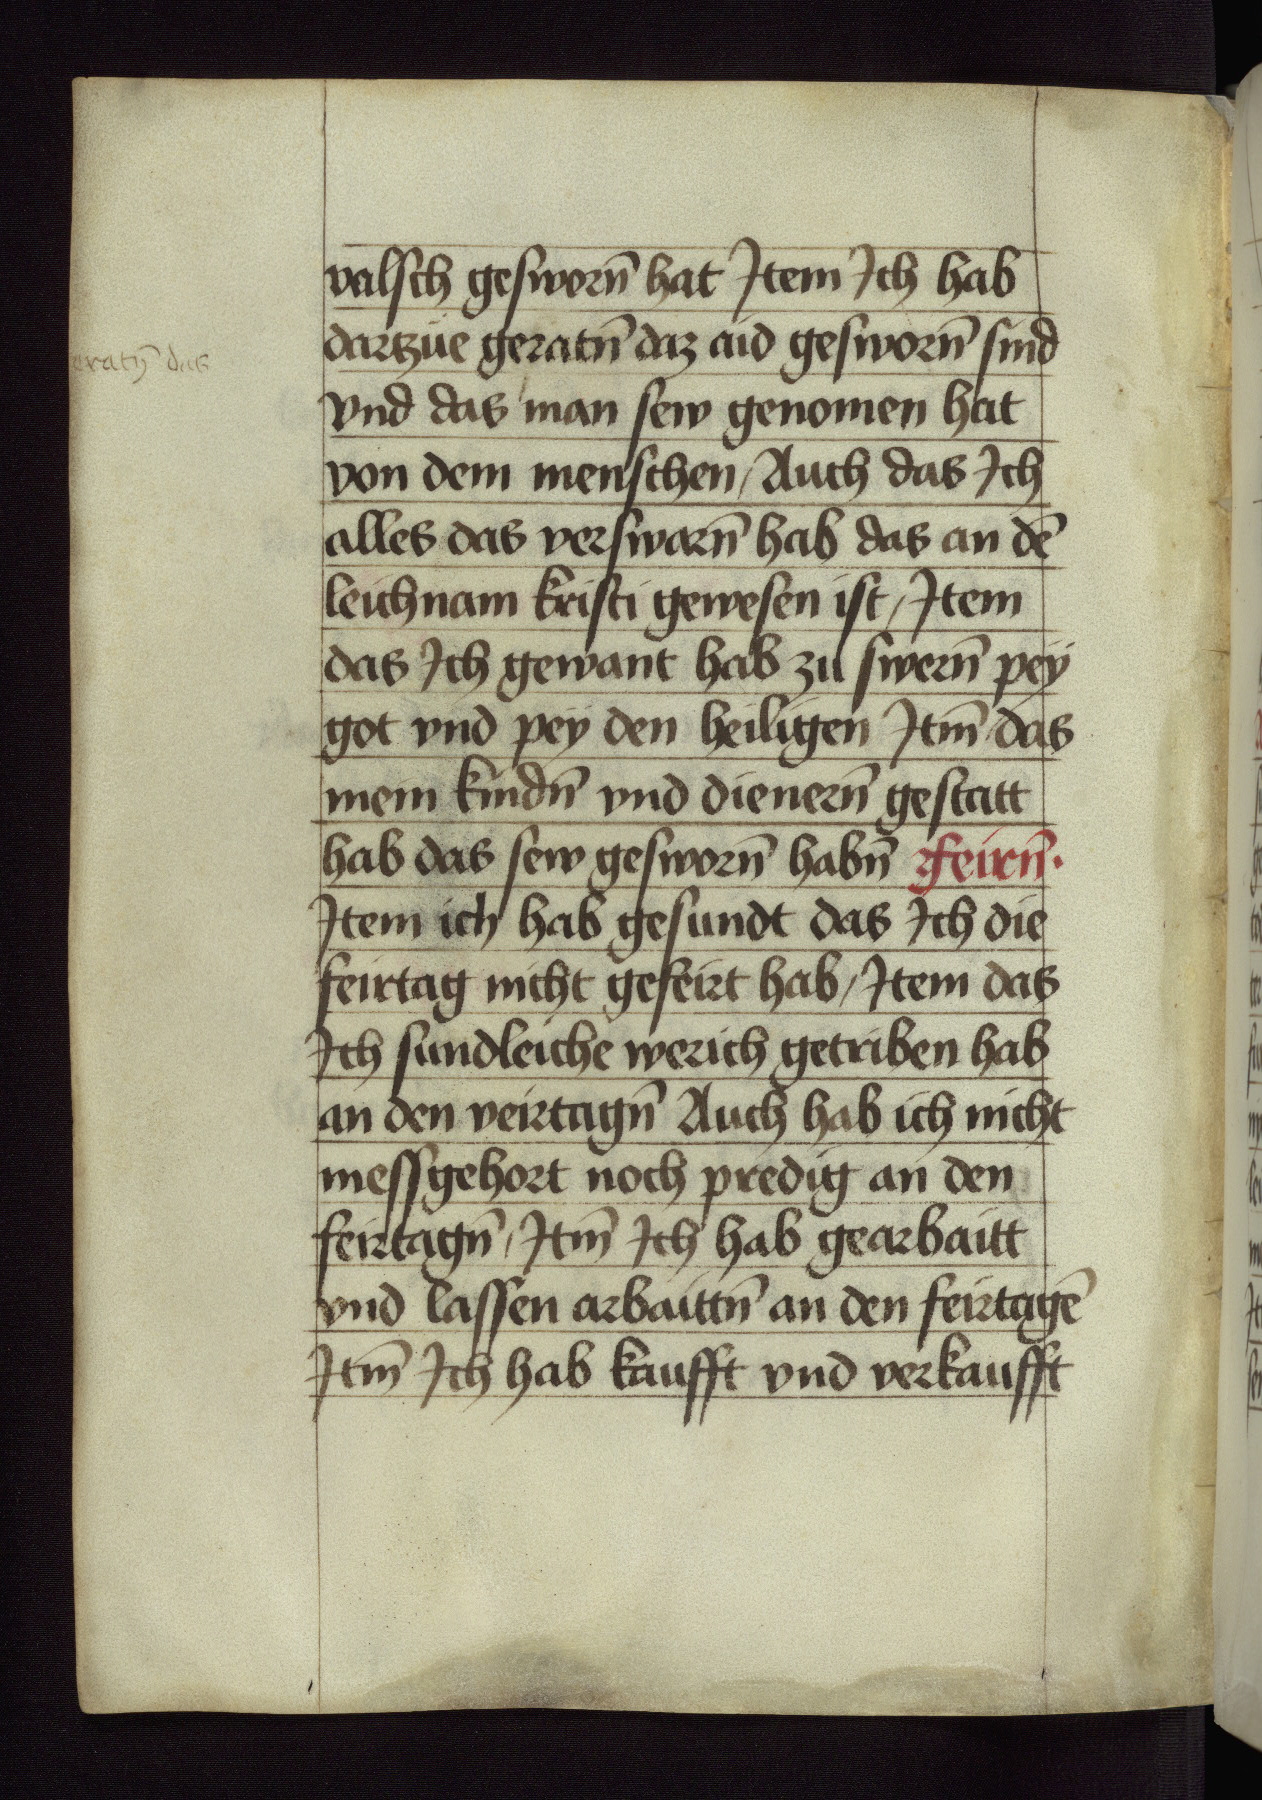 valsch gesworn̄ hat Item Ich hab
dartzue geratn̄ daz aid gesworn̄ sind
eratn̄ das
vnd das man sew genomen hat
von dem menschen / Auch das Ich
alles das verswarn̄ hab das an dē
leichnam kristi gewesen ist / Item
das Ich gewant hab zu swern̄ pey
got vnd pey den heiligen Itm̄ das
mein kindn̄ vnd dienern̄ gestatt
hab das sew gesworn̄ habn̄ feirn̄·
Item ich hab gesundt das Ich die
feirtag nicht gefeirt hab / Item das
Ich sundleiche werich getriben hab
an den veirtagn̄ Auch hab ich nicht
messgehort noch predig an den
feirtagn̄ / Itm̄ Ich hab gearbaitt
vnd lassen arbaittn̄ an den feirtagē
Itm̄ Ich hab kaufft vnd verkaufft